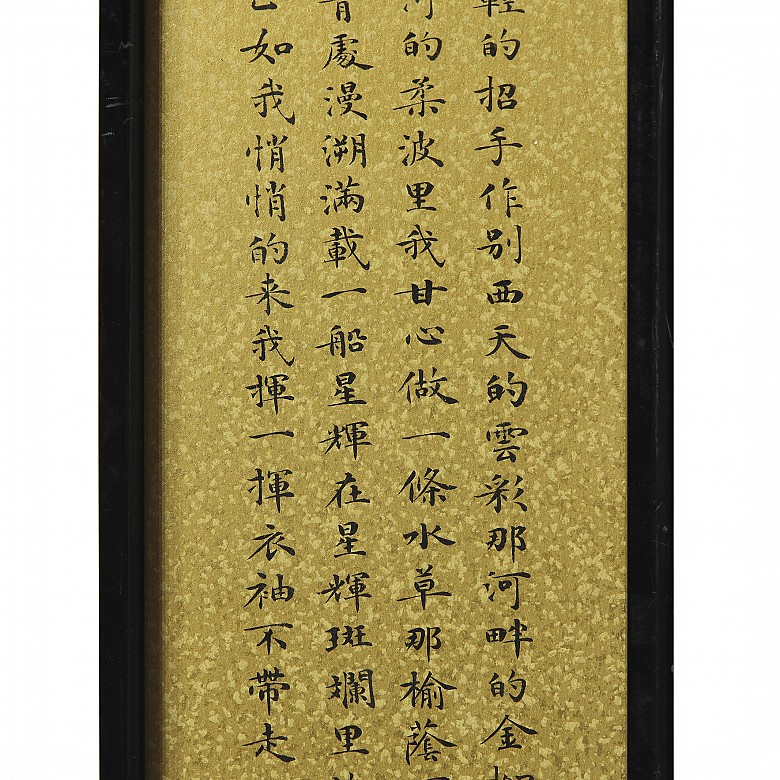 輕的招手作別西天的雲彩那河畔的金
河的柔波里我甘心做一條水草那榆蔭
青處漫溯滿載一船星輝在星輝斑斕里
如我悄悄的来我揮一揮衣袖不帶走